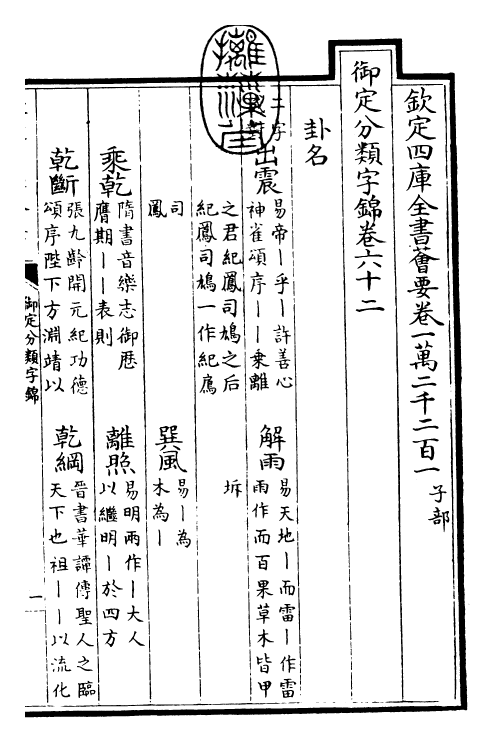 欽定四庫全書薈要卷一萬二千二百一 子部
御定分類字錦卷六十二
卦名
二字
出震
易帝丨乎丨許善心
神雀頌序丨丨乗離
解雨
易天地丨而雷丨作雷
雨作而百果草木皆甲
之君紀鳳司鳩之后
紀鳳司鳩一作紀鳸
坼
司
鳳
巽風
易丨為
木為丨
乘乾
隋書音樂志御厯
膺期丨丨表則
離照
易明兩作丨大人
以繼明丨於四方
乾斷
張九齡開元紀功德
頌序陛下方淵靖以
乾綱
晉書華譚傳聖人之臨
天下也祖丨丨以流化
御定分類字錦
一